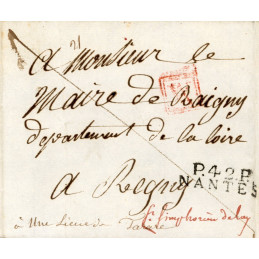 21
a Monsieur le
Maire de Raigny
departement de la loire
a Regny
P.42.P.
NANTES
à Une Lieue de Tarare
St. Simphorien de lay